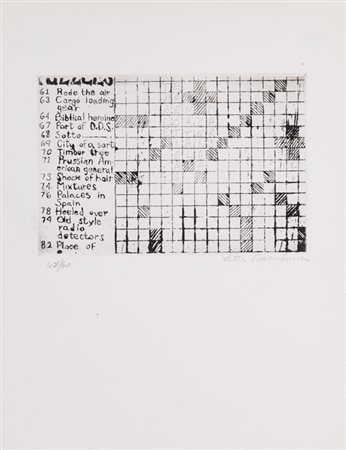 61 Rode the air
63 Cargo loading
gear
64 Biblical heroine
67 Part of D.D.S.
68 Sotto
69 City of a sort
70 Timber tree
71 Prussian Am-
erican general
73 Shade of hair
74 Mixtures
76 Palaces in
Spain
78 Heeled over
79 Old style
radio
detectors
82 Place of
/60